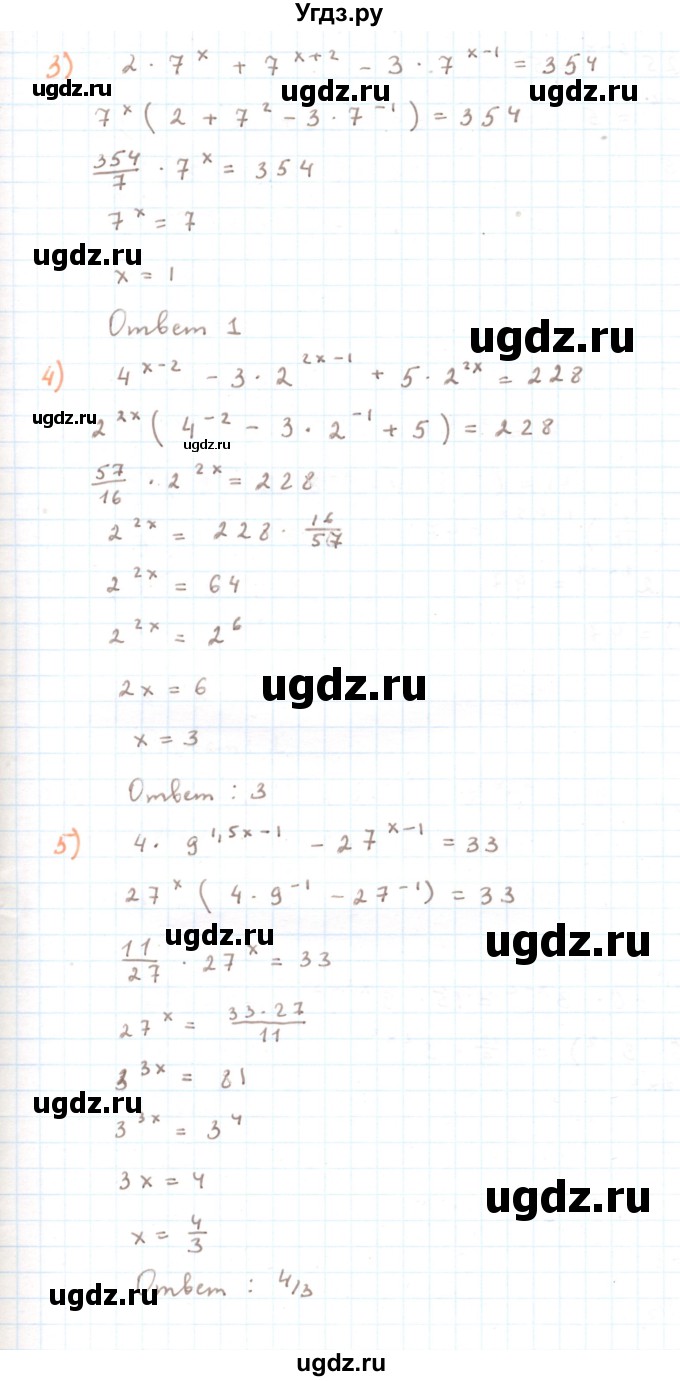 Угдз.ру
3) 2 · 7^x + 7^(x+2) − 3 · 7^(x−1) = 354
ugdz.ru ugdz.ru ugdz.ru
7^x ( 2 + 7^2 − 3 · 7^(−1) ) = 354
354/7 · 7^x = 354
7^x = 7
ugdz.ru
x = 1
Ответ 1
ugdz.ru
4) 4^(x−2) − 3 · 2^(2x−1) + 5 · 2^(2x) = 228
ugdz.ru
2^(2x) ( 4^(−2) − 3 · 2^(−1) + 5 ) = 228
ugdz.ru
57/16 · 2^(2x) = 228
2^(2x) = 228 · 16/57
2^(2x) = 64
2^(2x) = 2^6
2x = 6
ugdz.ru
x = 3
Ответ : 3
5) 4 · 9^(1,5x−1) − 27^(x−1) = 33
27^x ( 4 · 9^(−1) − 27^(−1) ) = 33
ugdz.ru ugdz.ru
11/27 · 27^x = 33
27^x = 33·27/11
3^(3x) = 81
ugdz.ru
3^(3x) = 3^4
3x = 4
ugdz.ru
x = 4/3
Ответ : 4/3
ugdz.ru
ugdz.ru